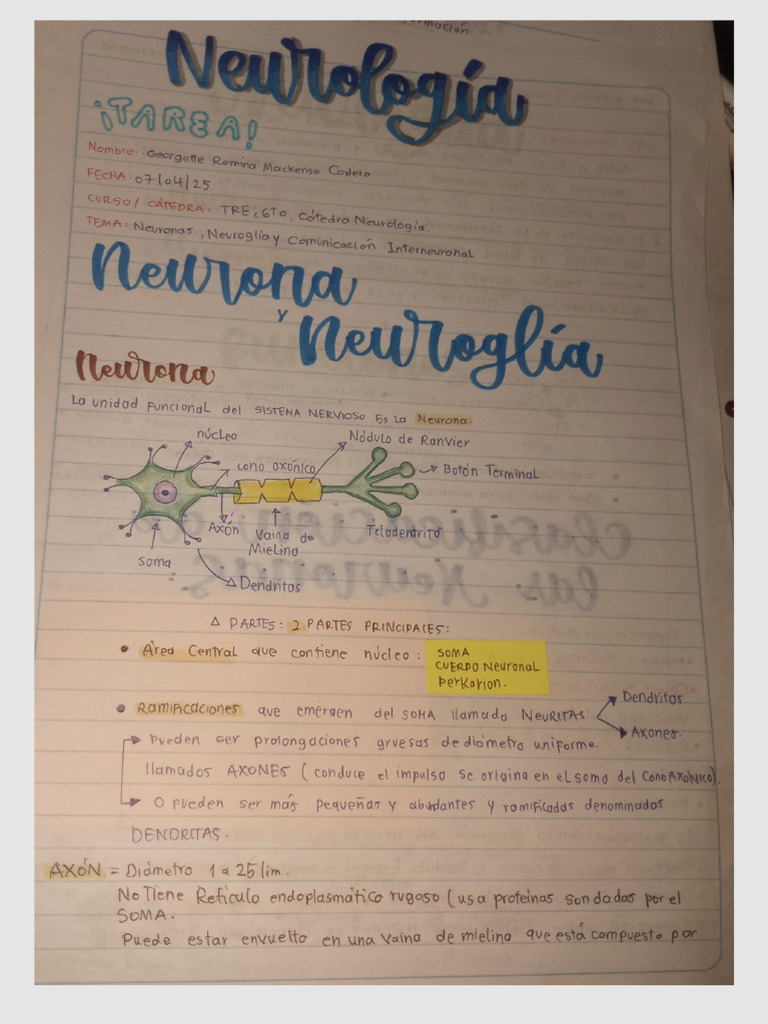 Neurología
¡TAREA!
Nombre: Georgette Romina Mackenso Codero
FECHA: 07/04/25
CURSO/ CÁTEDRA: TRE, 6TO, Cátedra Neurología.
TEMA: Neuronas, Neuroglía y Comunicación Interneuronal
Neurona
y Neuroglía
Neurona
La unidad Funcional del SISTEMA NERVIOSO Es La Neurona.
núcleo
Nódulo de Ranvier
cono axónico
Botón Terminal
Axón
Vaina de
Mielina
Telodendrito
Soma
Dendritas
Δ PARTES: 2 PARTES PRINCIPALES:
• Área Central que contiene núcleo:
SOMA
CUERDO Neuronal
Perkarion.
• Ramificaciones que emergen del soma llamado NEURITAS
Dendritas
Axones.
Pueden ser prolongaciones gruesas de diámetro uniforme.
llamados AXONES ( conduce el impulso se origina en el soma del CONO AXÓNICO).
O pueden ser más pequeñas y abundantes y ramificadas denominadas
DENDRITAS.
AXÓN = Diámetro 1 a 25 lim.
No Tiene Retículo endoplasmático rugoso (usa proteínas son dadas por el
SOMA.
Puede estar envuelto en una vaina de mielina que está compuesto por